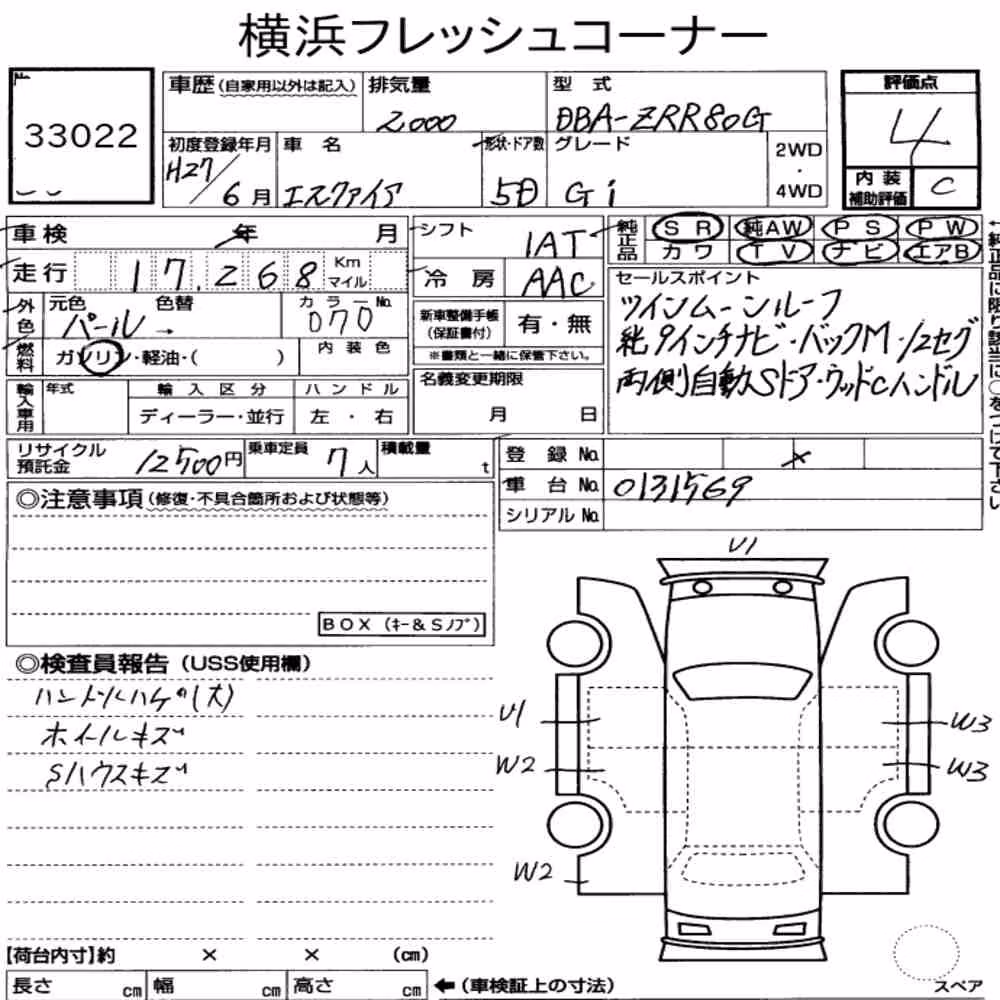 横浜フレッシュコーナー
33022
車歴 (自家用以外は記入) 排気量 2000 型式 DBA-ZRR80G 評価点 4
初度登録年月 H27/6月 車名 エスクァイア 形状・ドア数 5D グレード Gi 2WD・4WD 内装補助評価 C
車検 年 月 シフト IAT 純正品 SR 純AW PS PW
走行 17,268 Km マイル 冷房 AAC カワ TV ナビ エアB
外色 元色 パール → 色替 カラーNo. 070
燃料 ガソリン・軽油・( ) 内装色
新車整備手帳(保証書付) 有・無
※書類と一緒に保管下さい。
セールスポイント
ツインムーンルーフ
純9インチナビ・バックM・12セグ
両側自動Sドア・ウッドCハンドル
輸入車用 年式 輸入区分 ディーラー・並行 ハンドル 左・右
名義変更期限 月 日
リサイクル預託金 12500円 乗車定員 7人 積載量 t
登録No.
車台No. 0131569
シリアルNo.
◎注意事項 (修復・不具合箇所および状態等)
BOX (キー&Sノブ)
◎検査員報告 (USS使用欄)
ハンドルハゲ(大)
ホイールキズ
Sハウスキズ
U1
U1
W2
W2
W3
W3
【荷台内寸】約 × × (cm)
長さ cm 幅 cm 高さ cm ←(車検証上の寸法)
スペア